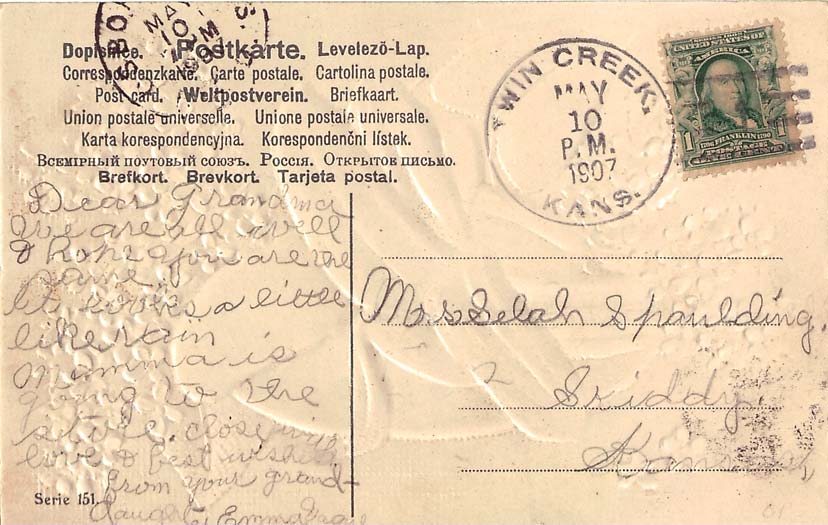 Dopisnice. Postkarte. Levelező-Lap.
Correspondenzkarte. Carte postale. Cartolina postale.
Post card. Weltpostverein. Briefkaart.
Union postale universelle. Unione postale universale.
Karta korespondencyjna. Korespondenční lístek.
Всемірный почтовый союзъ. Россія. Открытое письмо.
Brefkort. Brevkort. Tarjeta postal.
TWIN CREEK.
MAY
10
P. M.
1907
KANS.
UNITED STATES OF
AMERICA
1 1
FRANKLIN
POSTAGE
Dear Grandma
We are all well
& hope you are the
same.
It looks a little
like rain
Mamma is
going to the
close with
love & best wishes
from your grand-
daughter Emma
Serie 151.
Mrs Selah Spaulding.
Skiddy
Kansas,